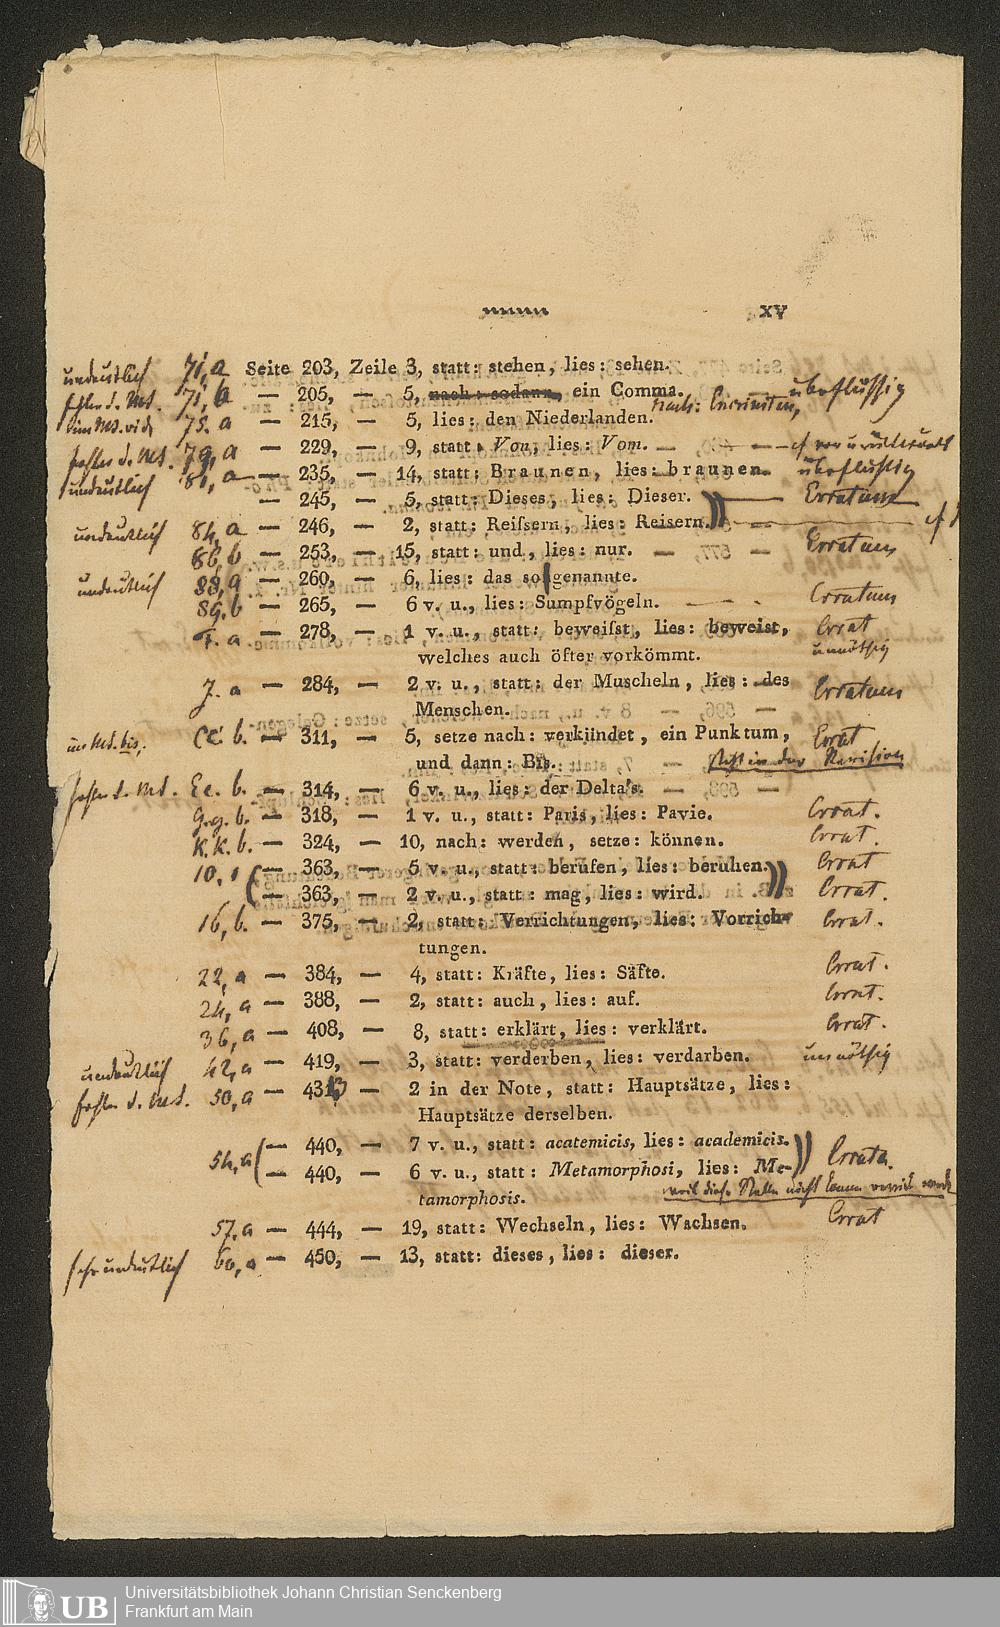 XV
undeutlich 71, a Seite 203, Zeile 3, statt: stehen, lies: sehen.
71, b — 205, — 5, nach: sodann, ein Comma. überflüssig
nach: Encriniten,
75. a — 215, — 5, lies: den Niederlanden.
79, a — 229, — 9, statt: Von, lies: Vom.
undeutlich 81, a — 235, — 14, statt: Braunen, lies: braunen. überflüssig
— 245, — 5, statt: Dieses, lies: Dieser. Erratum
undeutlich 84, a — 246, — 2, statt: Reifsern, lies: Reisern.
86, b — 253, — 15, statt: und, lies: nur. Erratum
undeutlich 88, a — 260, — 6, lies: das sogenannte.
89. b — 265, — 6 v. u., lies: Sumpfvögeln. Erratum
F. a — 278, — 1 v. u., statt: beweifst, lies: beweist, Errat
welches auch öfter vorkömmt. unnöthig
J. a — 284, — 2 v. u., statt: der Muscheln, lies: des Erratum
Menschen.
im Ms. bis. CC. b. — 311, — 5, setze nach: verkündet, ein Punktum, Errat
und dann: Bis. steht in der Revision
fehler d. Ms. Ee. b. — 314, — 6 v. u., lies: der Delta's.
G.g. b. — 318, — 1 v. u., statt: Paris, lies: Pavie. Errat.
K.k. b. — 324, — 10, nach: werden, setze: können. Errat.
10, — 363, — 5 v. u., statt: berufen, lies: beruhen. Errat
— 363, — 2 v. u., statt: mag, lies: wird. Errat.
16, b. — 375, — 2, statt: Verrichtungen, lies: Vorrich- Errat.
tungen.
22, a — 384, — 4, statt: Kräfte, lies: Säfte. Errat.
24, a — 388, — 2, statt: auch, lies: auf. Errat.
36, a — 408, — 8, statt: erklärt, lies: verklärt. Errat.
undeutlich 42, a — 419, — 3, statt: verderben, lies: verdarben. unnöthig
fehler d. Ms. 50, a — 431 — 2 in der Note, statt: Hauptsätze, lies:
Hauptsätze derselben.
54, a — 440, — 7 v. u., statt: acatemicis, lies: academicis. Errata.
— 440, — 6 v. u., statt: Metamorphosi, lies: Me-
tamorphosis. weil diese Stelle nicht
57. a — 444, — 19, statt: Wechseln, lies: Wachsen. Errat
sehr undeutlich 60, a — 450, — 13, statt: dieses, lies: dieser.
UB Universitätsbibliothek Johann Christian Senckenberg
Frankfurt am Main